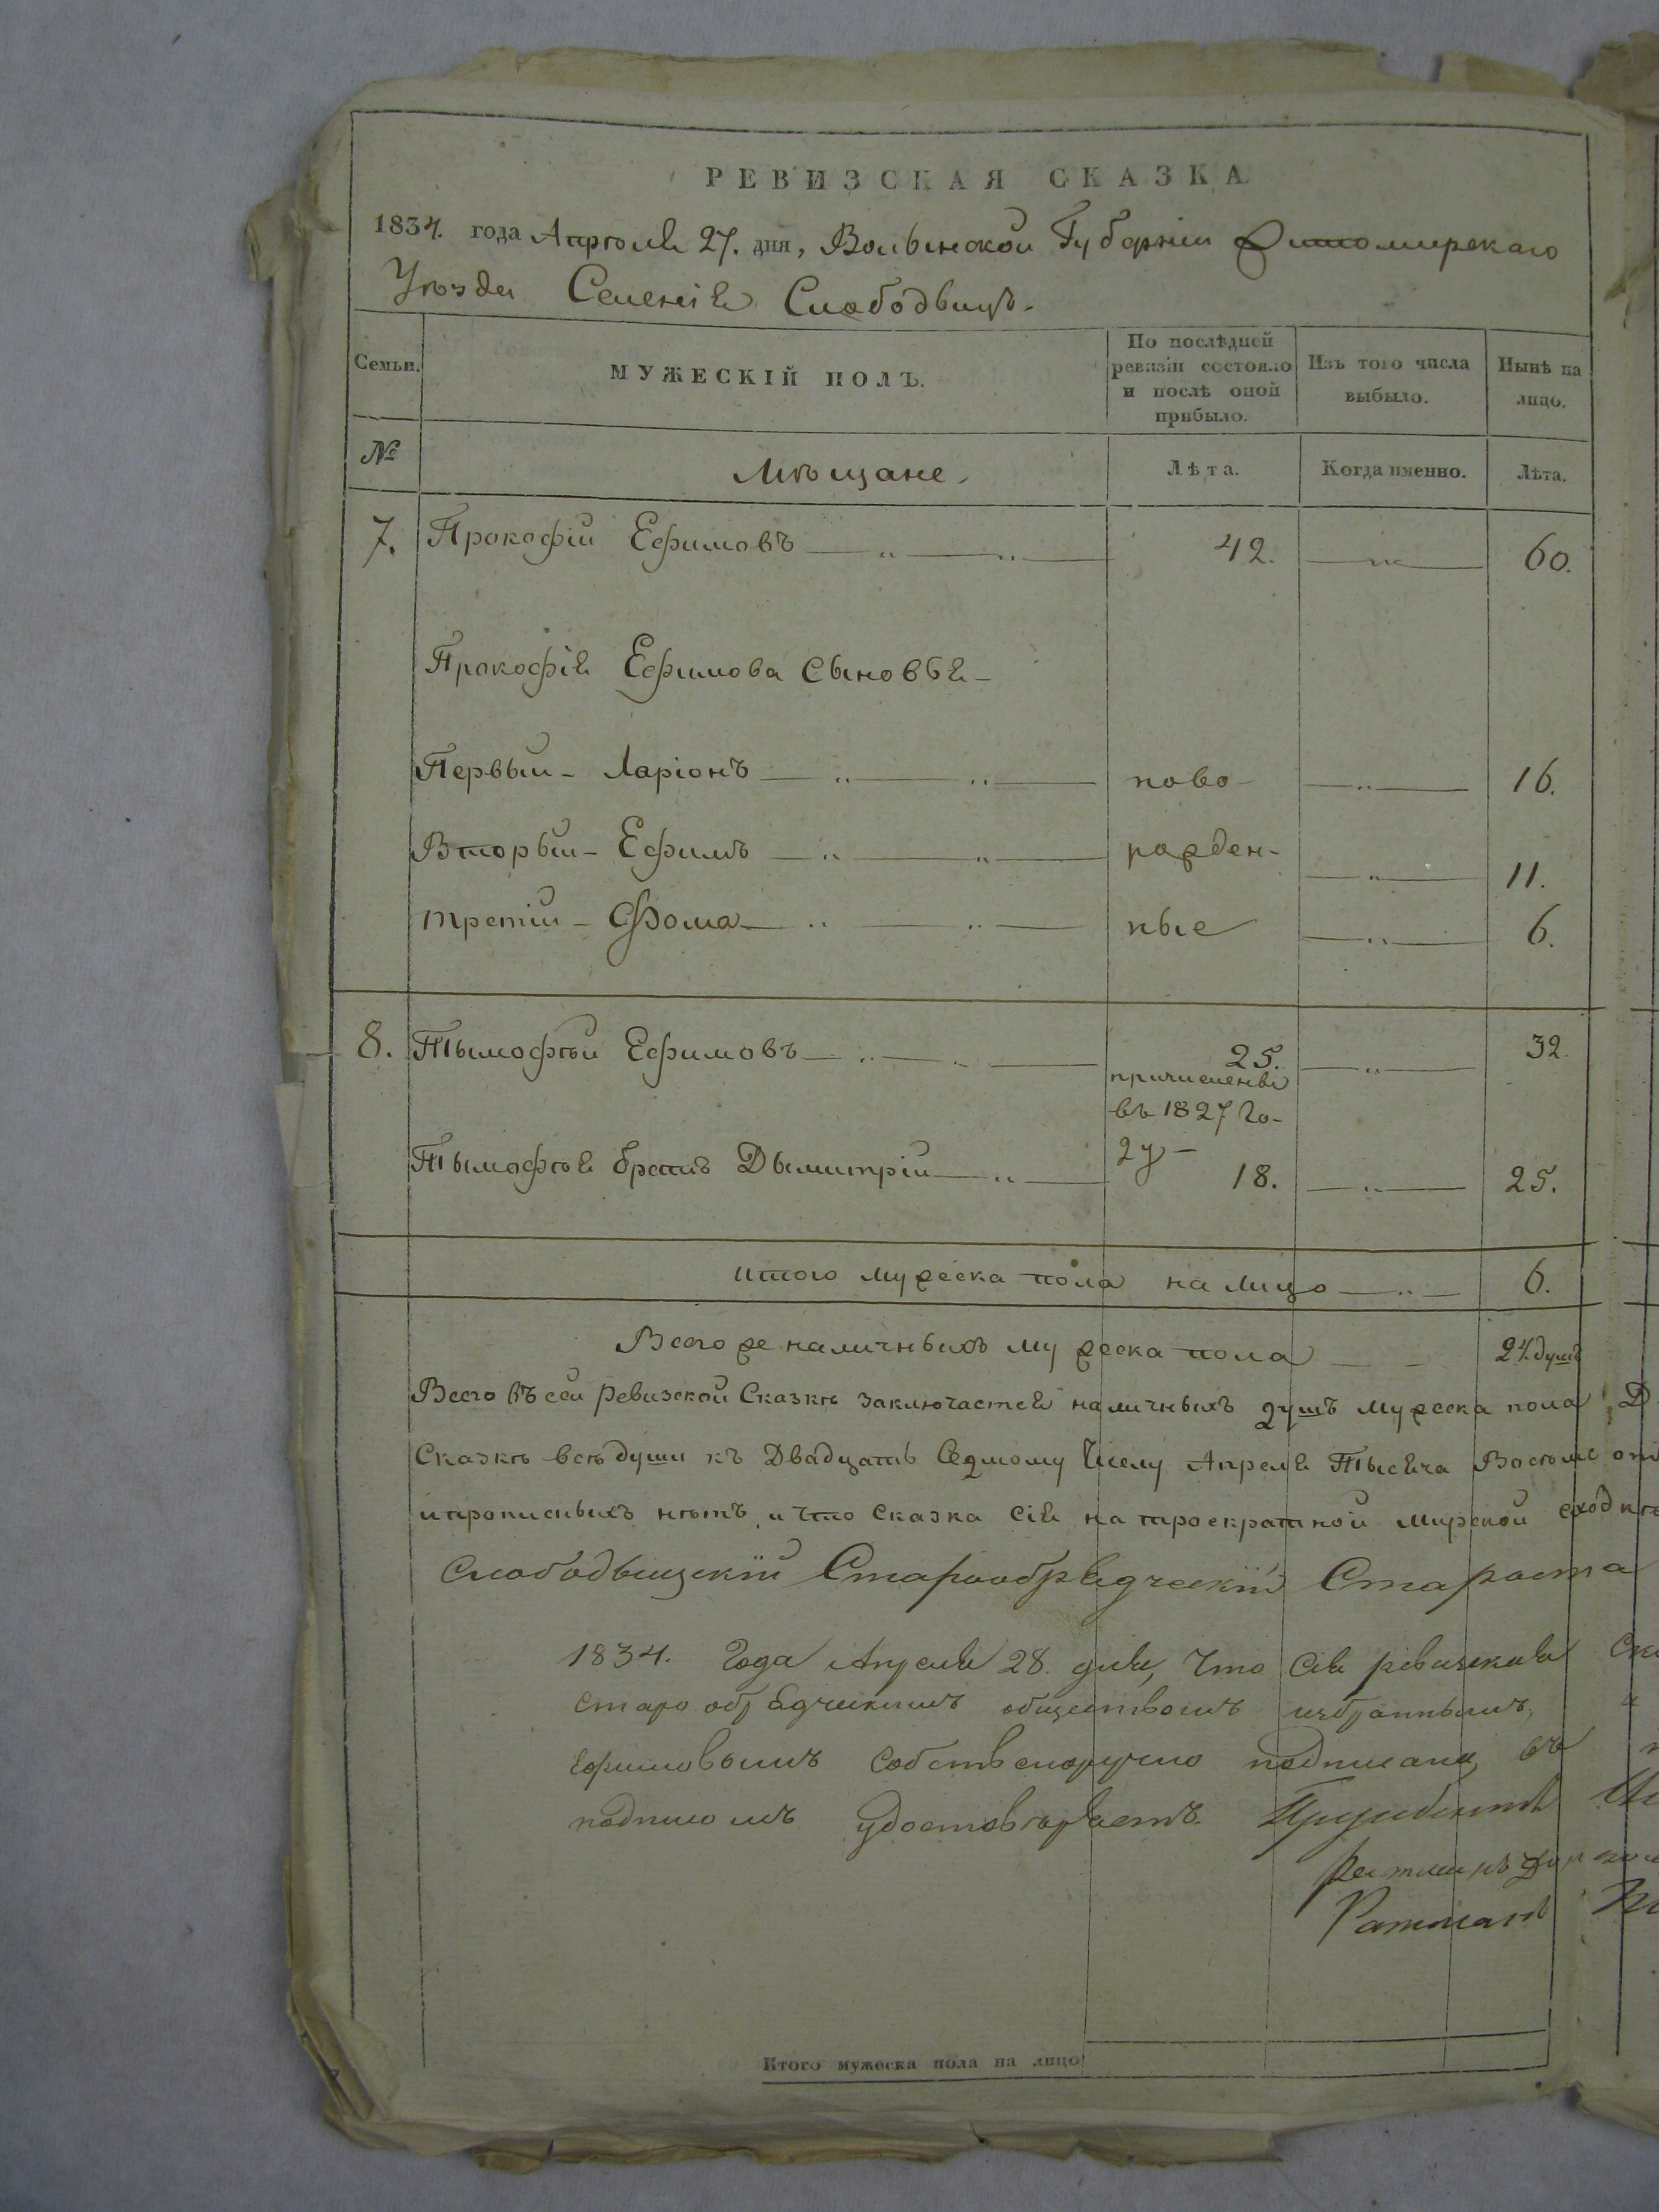 РЕВИЗСКАЯ СКАЗКА
1834. года Апрѣля 27. дня, Волынской Губерніи Житомирскаго
Уѣзда Селенія Слободыщъ.
Семьи. МУЖЕСКІЙ ПОЛЪ. По послѣдней ревизіи состояло и послѣ оной прибыло. Изъ того числа выбыло. Нынѣ на лицо.
№ Мѣщане. Лѣта. Когда именно. Лѣта.
7. Прокофій Ефимовъ 42. 60.
Прокофія Ефимова сыновья
Первый Ларіонъ ново 16.
Вторый Ефимъ рожден- 11.
третій Фома ные 6.
8. Тымофѣй Ефимовъ 25. 32.
причислены
въ 1827 го-
ду
Тымофѣя братъ Дымитрій 18. 25.
итого мужеска пола на лицо 6.
Всего же наличныхъ мужеска пола 24. душъ
Всего въ сей ревизской Сказкѣ заключается наличныхъ душъ мужеска пола Д
Сказкѣ всѣ души къ Двадцать Седмому Числу Апреля Тысяча Восемь
и прописныхъ нѣтъ, и что сказка сія на троекратной мирской сходкѣ
Слободыщскій Старообрядческій Староста
1834. Года Апреля 28. дня, Что Сія ревизская Ска
старообрядческимъ обществомъ избраннымъ, и
Ефимовымъ собственоручно подписана, въ
подписомъ удостовѣряетъ.
Ратманъ
Ратманъ
Итого мужеска пола на лицо